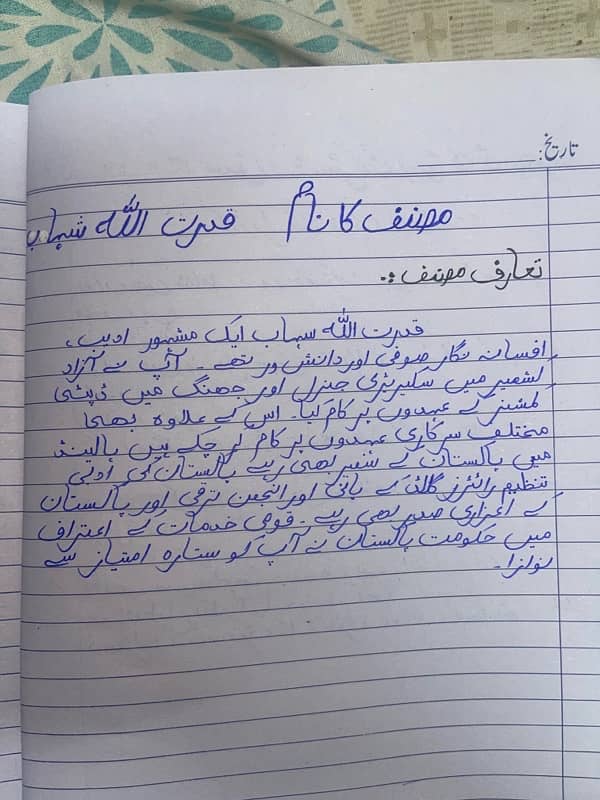 تاریخ:
مصنف کا نام قدرت اللہ شہاب
تعارف مصنف :.
قدرت اللہ سہاب ایک مشہور ادیب،
افسانہ نگار صوفی اور دانش ور تھے۔ آپ نے آزاد
کشمیر میں سکیریٹری جنرل اور جھنگ میں ڈپٹی
کمشنر کے عہدوں پر کام کیا۔ اس کے علاوہ بھی
مختلف سرکاری عہدوں پر کام کر چکے ہیں ہالینڈ
میں پاکستان کے سفیر بھی رہے پاکستان کی ادبی
تنظیم رائٹرز گلڈ کے بانی اور انجمن ترقی اور پاکستان
کے اعزازی صدر بھی رہے۔ قومی خدمات کے اعتراف
میں حکومت پاکستان نے آپ کو ستارہ امتیاز سے
نوازا۔